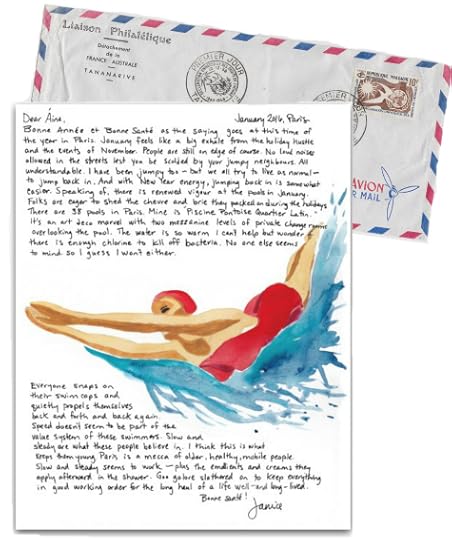 Liaison Philatélique
Détachement
de la
FRANCE AUSTRALE
TANANARIVE
PREMIER JOUR
AVION
MAIL
Dear Áine,
January 2016, Paris.
Bonne Année et Bonne Santé as the saying goes at this time of
the year in Paris. January feels like a big exhale from the holiday hustle
and the events of November. People are still on edge of course. No loud noises
allowed in the streets lest you be scolded by your jumpy neighbours. All
understandable. I have been jumpy too – but we all try to live as normal –
to jump back in. And with New Year energy, jumping back in is somewhat
easier. Speaking of, there is renewed vigour at the pools in January.
Folks are eager to shed the chevre and brie they packed on during the holidays
There are 38 pools in Paris. Mine is Piscine Pontoise Quartier Latin.
It's an art deco marvel with two mezzenine levels of private change rooms
overlooking the pool. The water is so warm I can't help but wonder if
there is enough chlorine to kill off bacteria. No one else seems
to mind so I guess I won't either.
Everyone snaps on
their swim caps and
quietly propels themselves
back and forth and back again.
Speed doesn't seem to be part of the
value system of these swimmers. Slow and
steady are what these people believe in. I think this is what
keeps them young. Paris is a mecca of older, healthy, mobile people.
Slow and steady seems to work – plus the emollients and creams they
apply afterward in the shower. Goo galore slathered on to keep everything
in good working order for the long haul of a life well-and long-lived.
Bonne santé!
Janice